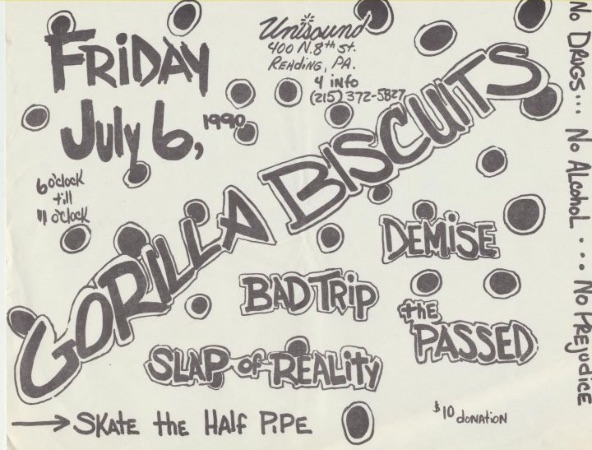 FRIDAY
July 6, 1990
6 o'clock
till
11 o'clock
Unisound
400 N. 8th St.
READING, PA.
4 info
(215) 372-5827
GORILLA BISCUITS
DEMISE
BAD TRIP
the
PASSED
SLAP of REALITY
→ SKATE the HALF PIPE
$10 donation
No DRUGS... No Alcohol... No PREJUDICE